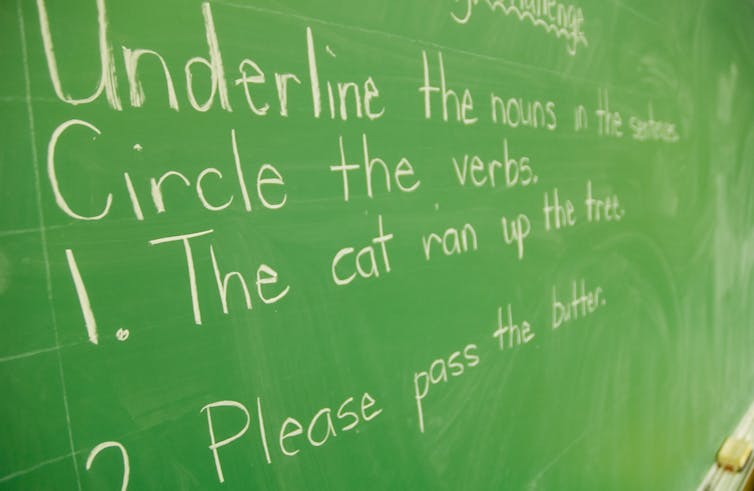 challenge
Underline the nouns in the sentences.
Circle the verbs.
1. The cat ran up the tree.
2. Please pass the butter.